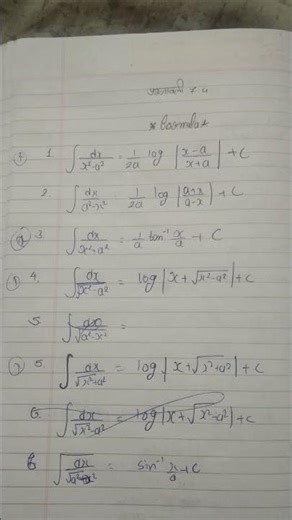 प्रश्नावली 7.4
* Formula *
① 1. ∫ dx/x²-a² = 1/2a log |x-a/x+a| + C
2. ∫ dx/a²-x² = 1/2a log |a+x/a-x| + C
② 3. ∫ dx/x²+a² = 1/a tan⁻¹ x/a + C
③ 4. ∫ dx/√x²-a² = log |x + √x²-a²| + C
5. ∫ dx/√a²-x² =
5. ∫ dx/√x²+a² = log |x + √x²+a²| + C
6. ∫ dx/√x²-a² = log |x + √x²-a²| + C
6. ∫ dx/√a²-x² = sin⁻¹ x/a + C